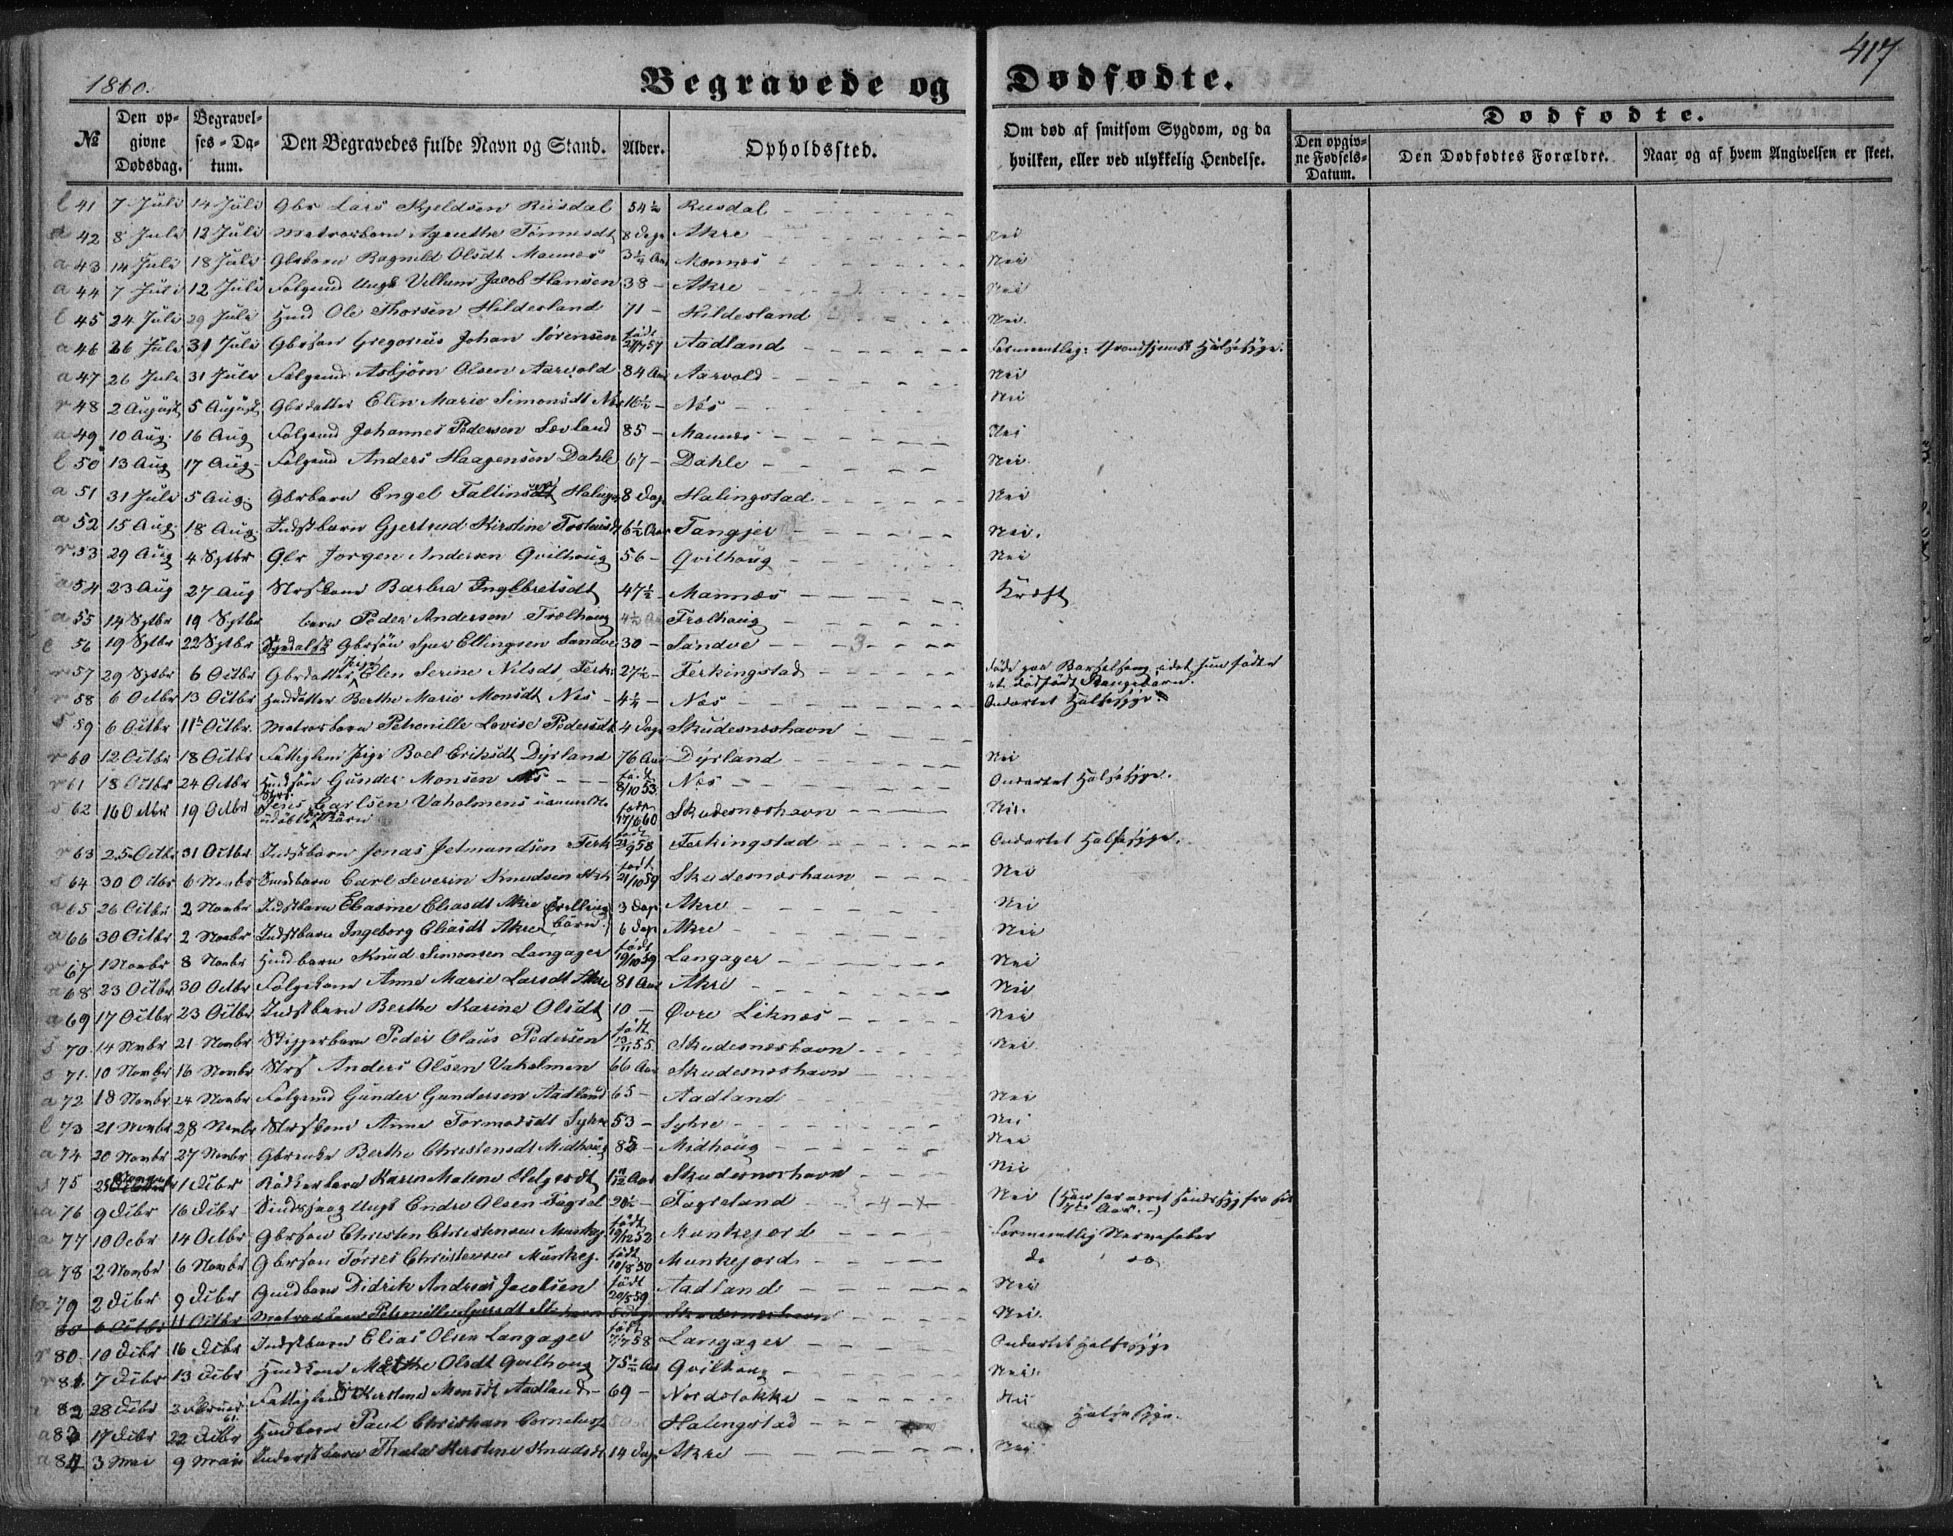 417
1860.
Begravede og Dødfødte.
№
Den opgivne Dødsdag.
Begravelses-Datum.
Den Begravedes fulde Navn og Stand.
Alder.
Opholdssted.
Om død af smitsom Sygdom, og da hvilken, eller ved ulykkelig Hendelse.
Dødfødte.
Den opgivne Fødsels-Datum.
Den Dødfødtes Forældre.
Naar og af hvem Angivelsen er skeet.
l 41 7 Juli 14 Juli Gbr Lars Kjeldsen Risdal 54 1/2 Risdal
42 8 Juli 12 Juli Matrosbarn Agnethe Tønnesdt 8 Dage Akre Nei
a 43 14 Juli 18 Juli Gbrbarn Ragnild Olsdt Mannes 3 1/4 Aar Mannes Nei
a 44 7 Juli 12 Juli Folgemd Ungk Villum Jacob Hansen 38 - Akre Nei
l 45 24 Juli 29 Juli Husmd Ole Thorsen Hildesland 71 - Hildesland Nei.
a 46 26 Juli 31 Juli Gbrsøn Gregorius Johan Sørensen født 57 Aadland Formentlig Halsesyge.
a 47 26 Juli 31 Juli Følgemd Asbjørn Olsen Aarvold 84 Aar Aarvold Nei
r 48 2 August 5 August Gbrdatter Elen Marie Simonsdt Nes 16 1/2 - Nes Nei
a 49 10 Aug. 16 Aug Følgemd Johannes Pedersen Sævland 85 - Mannes Nei
l 50 13 Aug 17 Aug Følgemd Anders Haagensen Dahle 67 - Dahle Nei.
a 51 31 Juli 5 Aug. Gbrbarn Engel Faltinsdt 8 Dage Halingstad Nei
a 52 15 Aug. 18 Aug. Indstbarn Gjertrud Kirstine 6 1/2 Aar Tangjer Nei.
r 53 29 Aug 4 Sptbr Gbr Jørgen Andersen Qvilhoug 56 - Qvilhoug Nei
a 54 23 Aug 27 Aug Strskone Barbra Ingebretsdt 47 1/2 - Mannes Kræft
a 55 14 Sptbr 19 Sptbr barn Peder Andersen Trælhoug Trælhoug
56 19 Sptbr 22 Sptbr Gbrsøn Sjur Ellingsen Sandve 30 - Sandve 3
r 57 29 Sptbr 6 Octbr Gbrdatter Pige Elen Serine Nilsdt Ferk. 27 1/2 - Ferkingstad Døde paa Barselseng, idet hun fødte et dødfødt Drengebarn.
r 58 6 Octbr 13 Octbr Husdatter Berthe Marie Monsdt Nes 4 1/2 - Nes Ondartet Halsesyge.
s 59 6 Octbr 11te Octbr. Matrosbarn Petronille Lovise Pedersdt 4 Dage Skudesneshavn
r 60 12 Octbr 18 Octbr Fattiglem Pige Boel Eriksdt Dyrland 76 Aar Dyrland Nei
r 61 18 Octbr 24 Octbr Husdsøn Gunder Monsen Nes født 8/10 53 Nes Ondartet Halsesyge.
s 62 16 Octbr 19 Octbr Strs. Jens Carlsen Vaholmens unavndte udøbte Barn født 17/6 60 Skudesneshavn Nei.
r 63 25 Octbr 31 Octbr Indstbarn Jonas Jetmundsen Ferk født 58 Ferkingstad Ondartet Halsesyge.
s 64 30 Octbr 6 Novbr Carl Severin Knudsen født 21/10 59 Skudesneshavn Nei
a 65 26 Octbr 2 Novbr Indstbarn Elasine Eliasdt Akre (Tvilling 3 Dage Akre Nei
a 66 30 Octbr 2 Novbr Indstbarn Ingeborg Eliasdt Akre børn.) 6 Dage Akre Nei
r 67 1 Novbr 8 Novbr Husdbarn Knud Simonsen Langager født 19/10 59 Langager Nei
a 68 23 Octbr 30 Octbr Følgekone Anne Marie Larsdt Akre 81 Aar Akre Nei
a 69 17 Octbr 23 Octbr Indstbarn Berthe Karine Olsdt 10 - Øvre Liknes Nei
s 70 14 Novbr 21 Novbr Skipperbarn Peder Olaus Pedersen født 55 Skudesneshavn Nei
s 71 10 Novbr 16 Novbr Strs Anders Olsen Vaholmen 66 Aar Skudesneshavn
a 72 18 Novbr 24 Novbr Følgemd Gunder Gundersen Aadland 65 - Aadland Nei
l 73 21 Novbr 28 Novbr Strskone Anne Tormodsdt Syhre 53 - Syhre Nei
a 74 20 Novbr 27 Novbr Gbrenke Berthe Christensdt Midhoug 85 - Midhoug Nei
s 75 25 Novbr 1 Dcbr Bødkerbarn Karen Malene Helgesdt Skudesneshavn Nei
a 76 9 Dcbr 16 Dcbr Sindssvag Ungk Endre Olsen Fagrel. Fagreland 4 Nei (Han har været sindssyg fra sit 7de Aar.)
a 77 10 Ocbr 14 Octbr Gbrsøn Christen Christensen Munkej. født 19/12 52 Munkejord Formentlig Nervefeber
a 78 2 Novbr 6 Novbr Gbrsøn Torres Christensen Munkej. født 10/8 50 Munkejord do do
a 79 2 Dcbr 9 Dcbr Didrik Andreas Jacobsen født 20/5 59 Aadland Nei
80 6 Octbr 11 Octbr Matrosbarn Petronille Skudesneshavn Nei.
r 80. 10 Dcbr 16 Dcbr Indstbarn Elias Olsen Langager født 58 Langager Ondartet Halsesyge
r 81 7 Dcbr 13 Dcbr Huuskone Malthe Olsdt Qvilhoug 75 1/2 Aar Qvilhoug Nei.
82 28 Dcbr 2 Februar 61. Fattiglem Kirstene Monsdt Aadland 69 - Nordstokke Nei
a 83 17 Dcbr 22 Dcbr Husdbarn Paul Christian Cornelius Halingstad Halsesyge.
a 84 3 Mai 9 Mai Inderstbarn Thala Kirstine Knudsdt 14 Dage Akre Nei